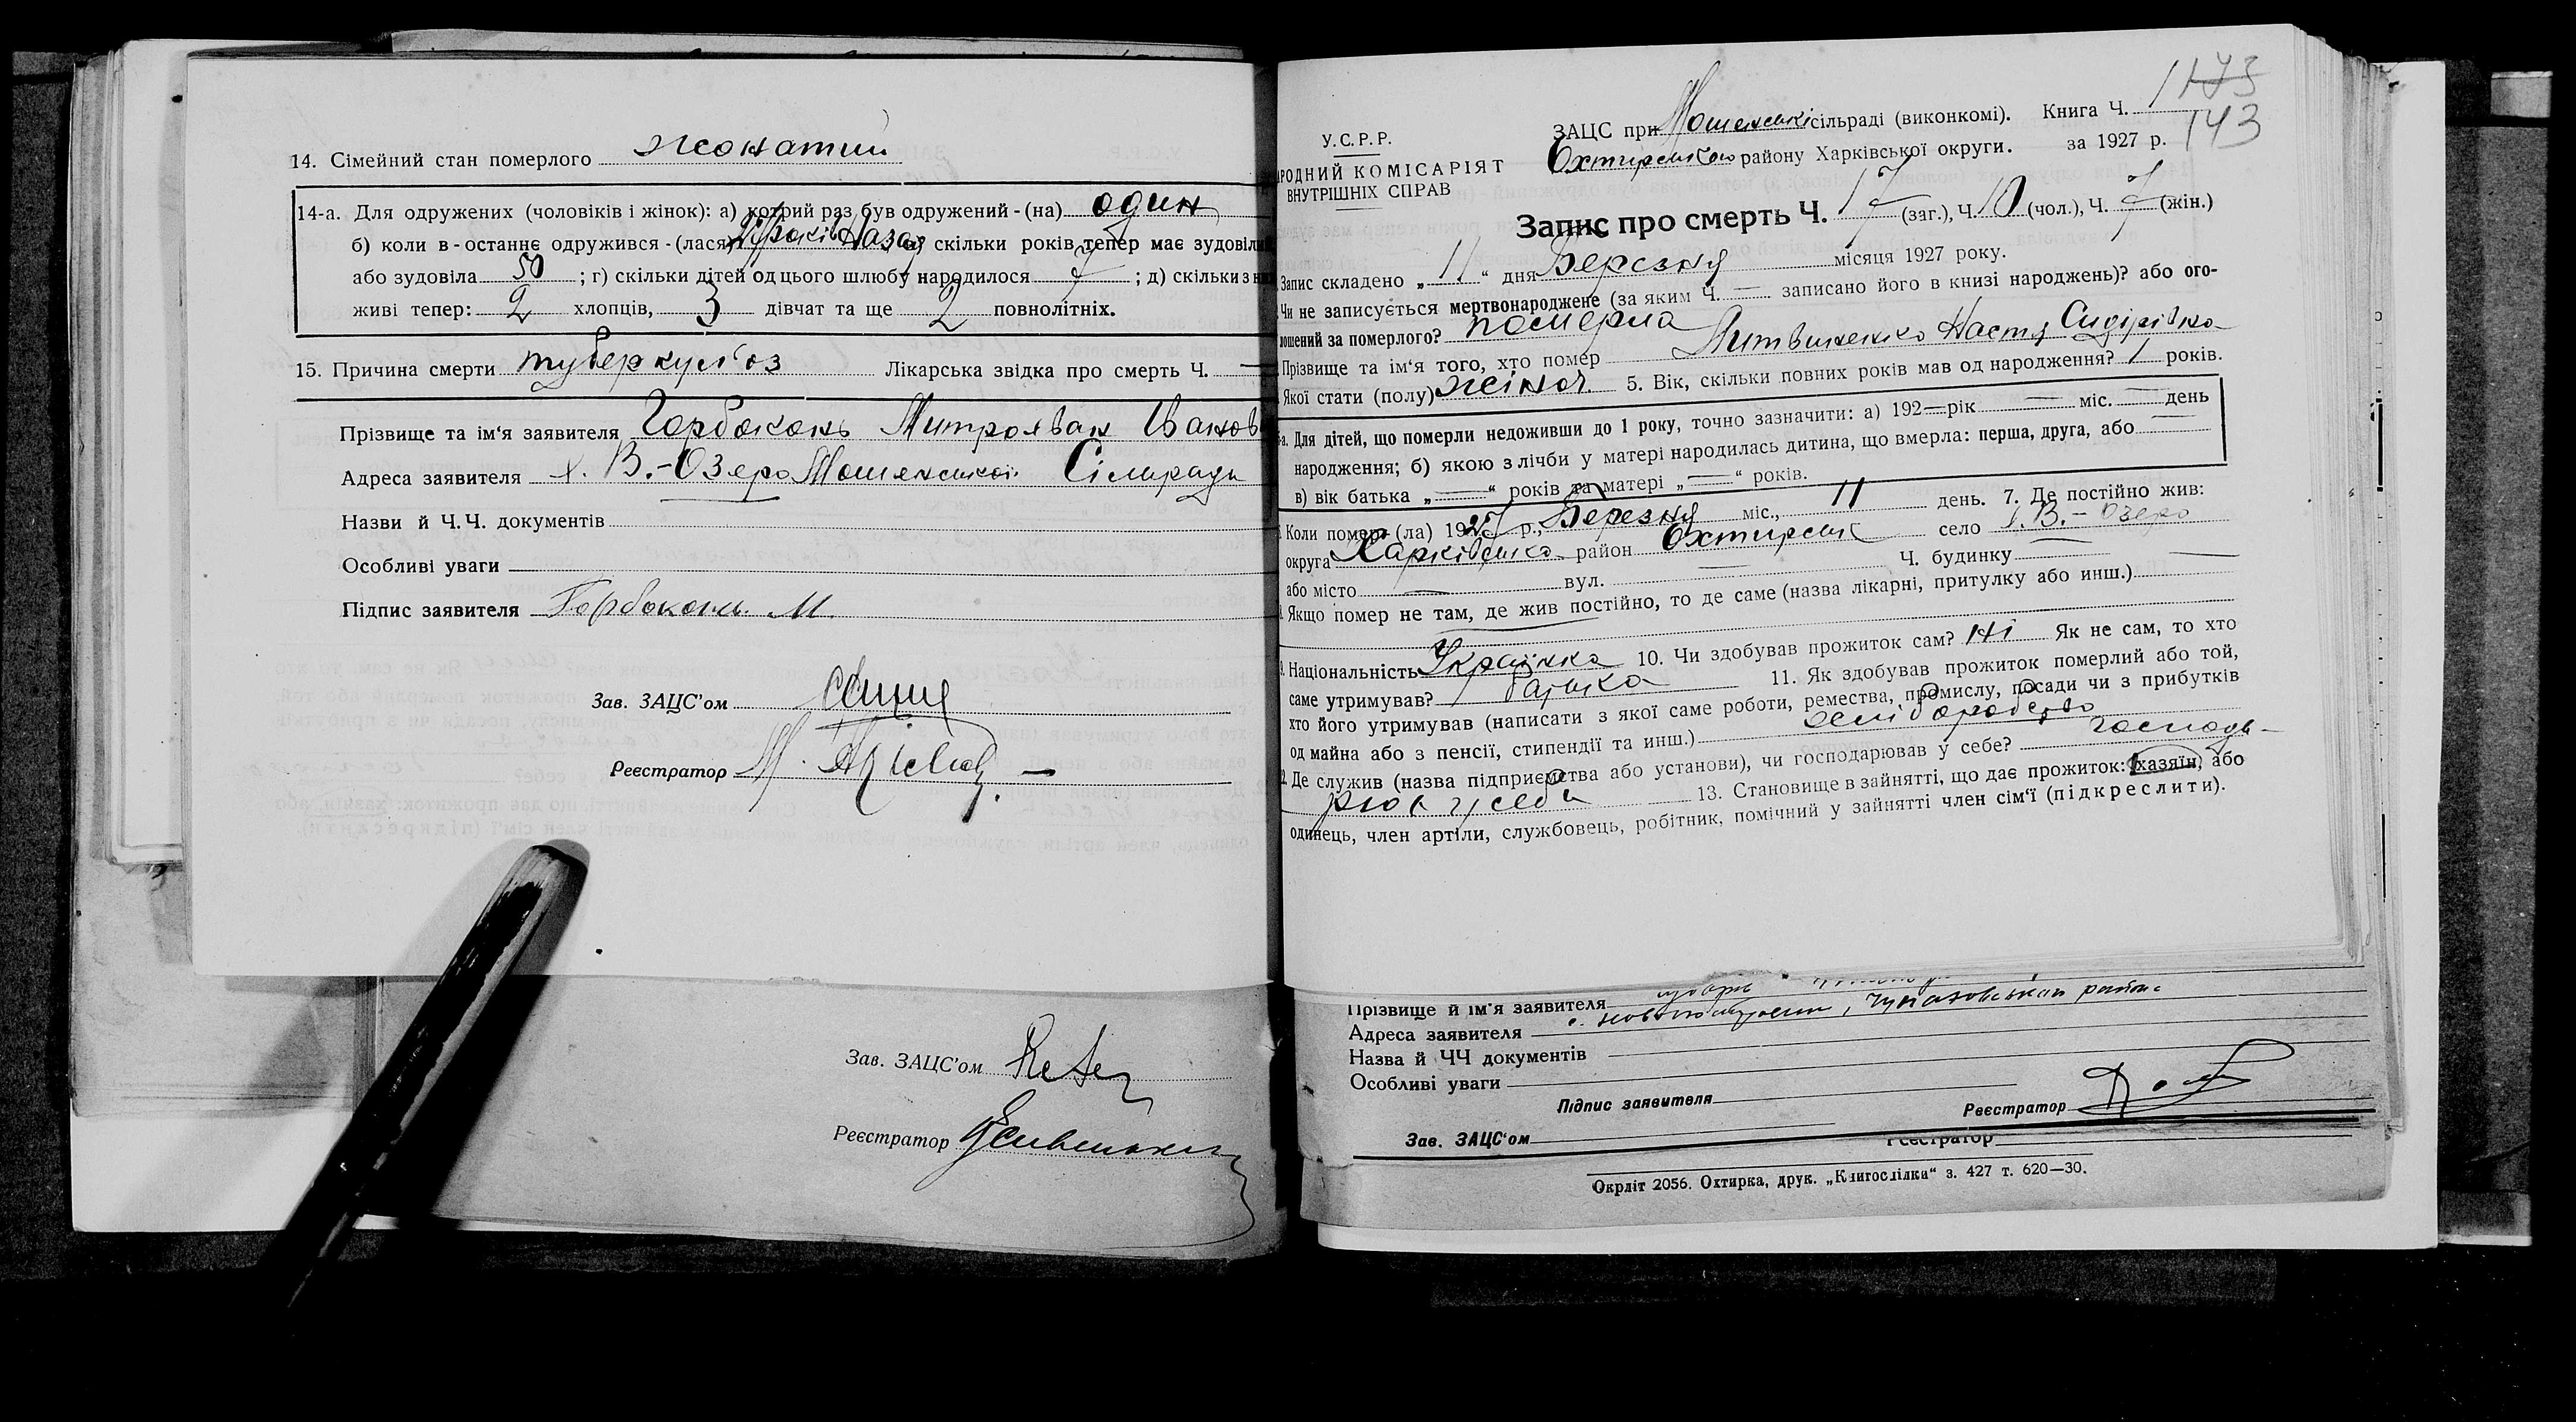 14. Сімейний стан померлого жонатий
14-а. Для одружених (чоловіків і жінок): а) котрий раз був одружений-(на) один
б) коли в-останнє одружився-(лася) років назад скільки років тепер має зудовіли
або зудовіла 50 ; г) скільки дітей од цього шлюбу народилося 7 ; д) скільки з них
живі тепер: 2 хлопців, 3 дівчат та ще 2 повнолітніх.
15. Причина смерти туберкульоз Лікарська звідка про смерть Ч. —
Прізвище та ім'я заявителя Горбоконь Митрофан Іванов
Адреса заявителя х. В.-Озеро Мошенської Сільради
Назви й Ч.Ч. документів
Особливі уваги
Підпис заявителя Горбоконь М.
Зав. ЗАЦС'ом
Реєстратор М.
Зав. ЗАЦС'ом
Реєстратор
1173
143
У.С.Р.Р.
РОДНИЙ КОМІСАРІЯТ
ВНУТРІШНІХ СПРАВ
ЗАЦС при Мошенські сільраді (виконкомі). Книга Ч.
Охтирського району Харківської округи. за 1927 р.
Запис про смерть Ч. 17 (заг.), Ч. 10 (чол.), Ч. 7 (жін.)
Запис складено „11“ дня Березня місяця 1927 року.
Чи не записується мертвонароджене (за яким Ч. — записано його в книзі народжень)? або ого-
лошений за померлого? померла
Прізвище та ім'я того, хто помер Литвиненко Настя Сидірівна
Якої статі (полу) жіноч. 5. Вік, скільки повних років мав од народження? 1 років.
а. Для дітей, що померли недоживши до 1 року, точно зазначити: а) 192— рік — міс. — день
народження; б) якою з лічби у матері народилась дитина, що вмерла: перша, друга, або —
в) вік батька „—“ років та матері „—“ років.
Коли помер (ла) 1927 р., Березня міс., 11 день. 7. Де постійно жив:
округа Харківська район Охтирськ село х. В.-Озеро
або місто — вул. — Ч. будинку —
Якщо помер не там, де жив постійно, то де саме (назва лікарні, притулку або инш.)
Національність Українка 10. Чи здобував прожиток сам? Ні Як не сам, то хто
саме утримував? батько 11. Як здобував прожиток померлий або той,
хто його утримував (написати з якої саме роботи, ремества, промислу, посади чи з прибутків
од майна або з пенсії, стипендії та инш.)
Де служив (назва підприємства або установи), чи господарював у себе? господа-
рює у себе 13. Становище в зайнятті, що дає прожиток: хазяїн, або
одинець, член артіли, службовець, робітник, помічний у зайнятті член сім'ї (підкреслити).
Прізвище й ім'я заявителя
Адреса заявителя
Назва й ЧЧ документів
Особливі уваги
Підпис заявителя
Реєстратор
Зав. ЗАЦС'ом
Реєстратор
Окрліт 2056. Охтирка, друк. „Книгоспілки“ з. 427 т. 620—30.